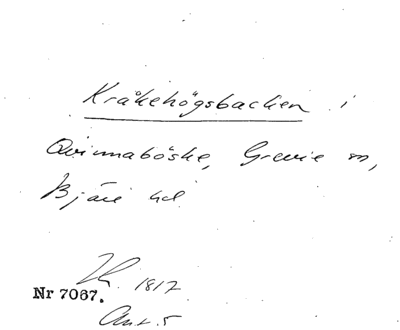 Kråkehögsbacken i
Qvinnaböske, Grevie sn,
Bjäre hd
1817
Nr 7067.
Ant. 5